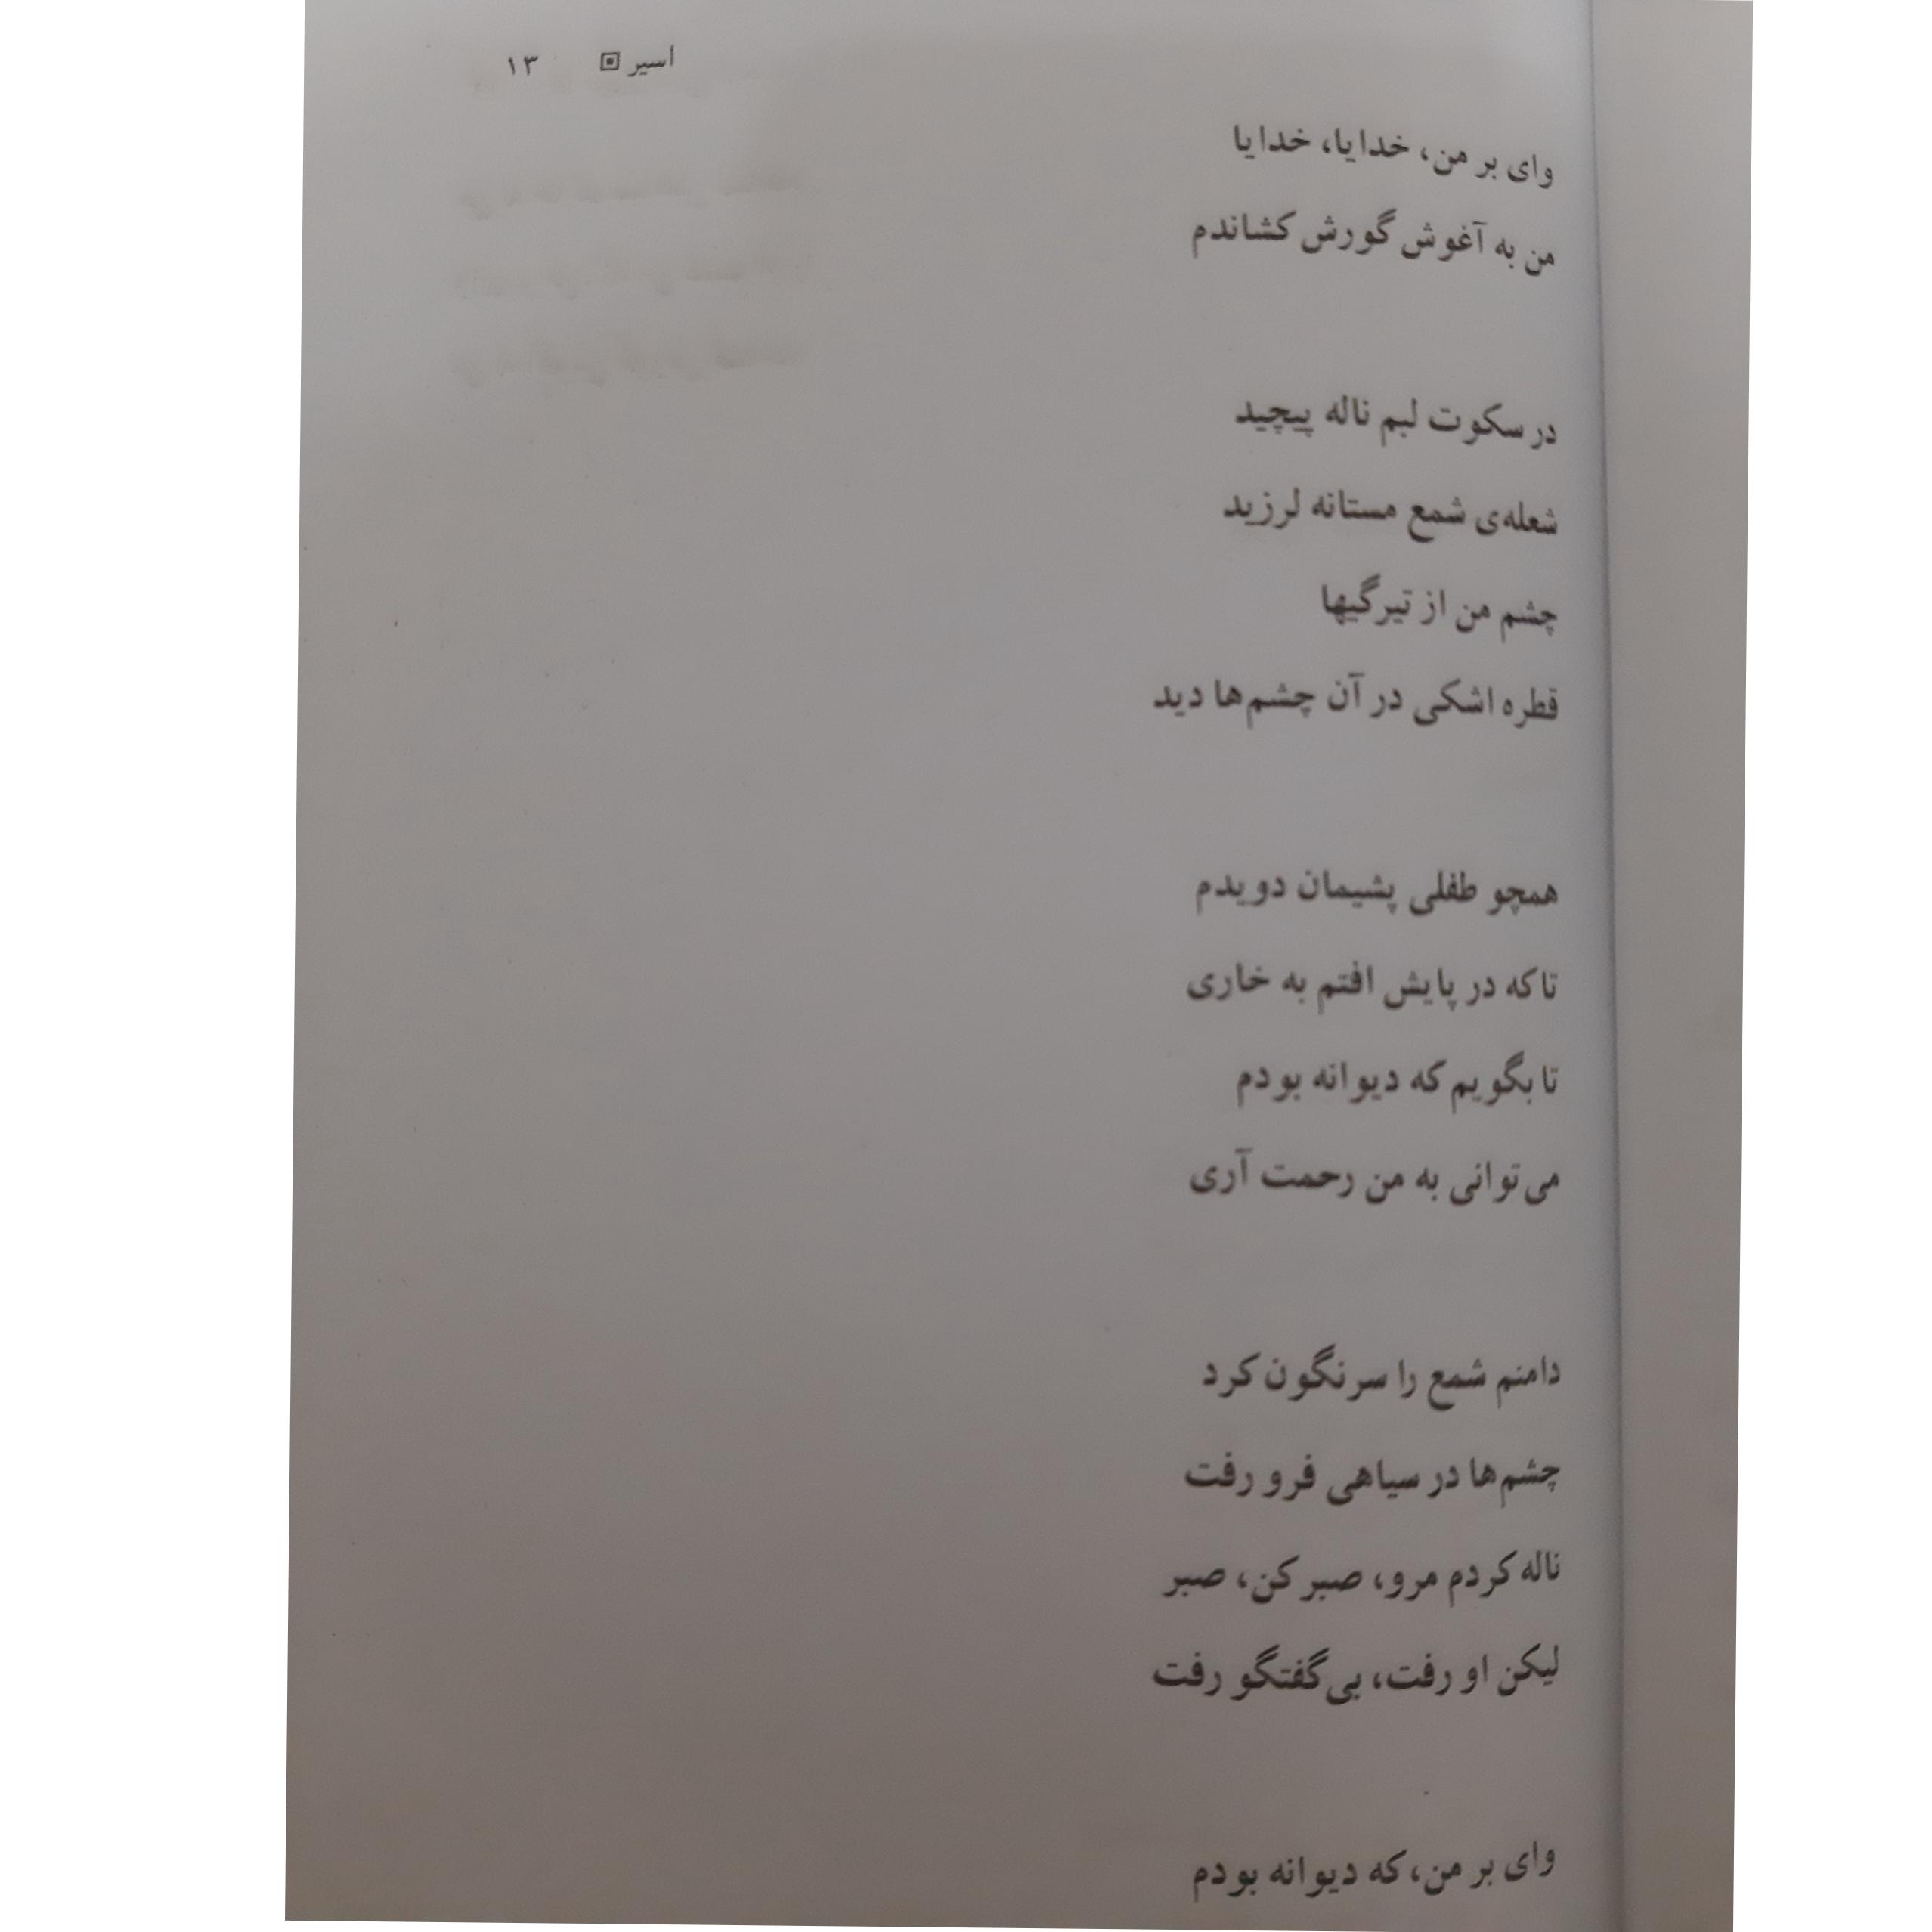 اسیر ۱۳
وای بر من، خدایا، خدایا
من به آغوش گورش کشاندم
در سکوت لبم ناله پیچید
شعله‌ی شمع مستانه لرزید
چشم من از تیرگیها
قطره اشکی در آن چشم‌ها دید
همچو طفلی پشیمان دویدم
تا که در پایش افتم به خاری
تا بگویم که دیوانه بودم
می‌توانی به من رحمت آری
دامنم شمع را سرنگون کرد
چشم‌ها در سیاهی فرو رفت
ناله کردم مرو، صبر کن، صبر
لیکن او رفت، بی‌گفتگو رفت
وای بر من، که دیوانه بودم